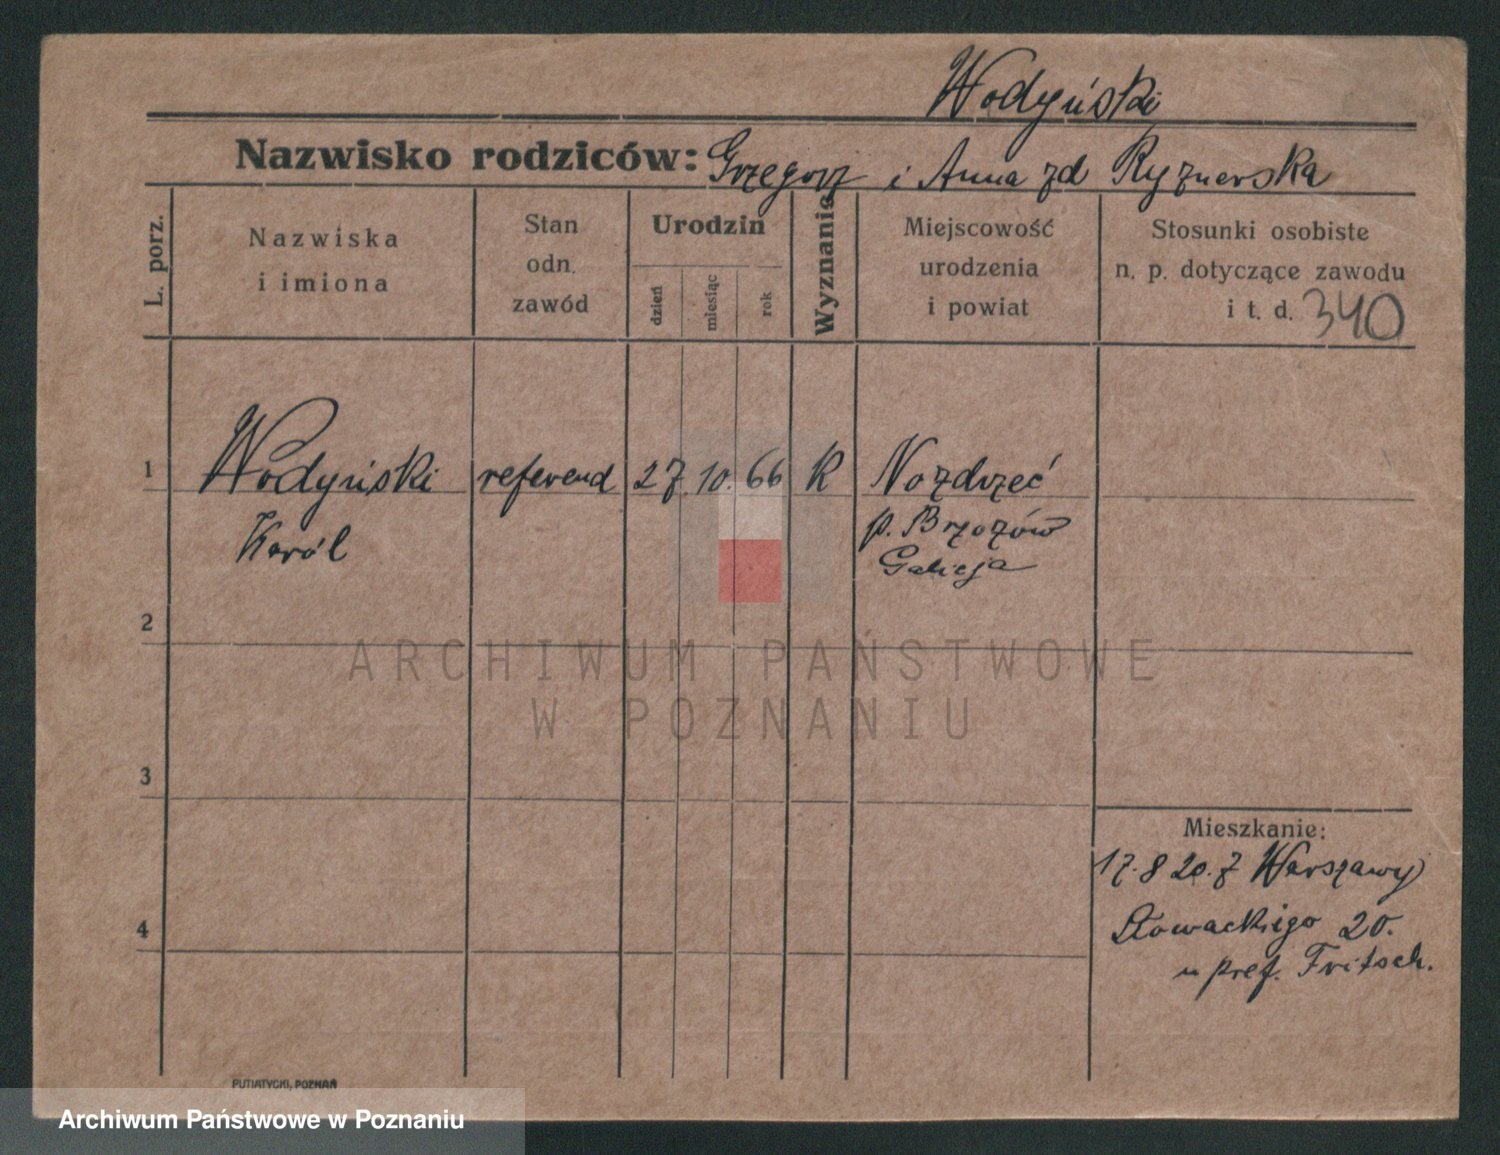 Wodyński
Nazwisko rodziców: Grzegorz i Anna zd Ryznerska
L. porz.
Nazwiska
i imiona
Stan
odn.
zawód
Urodzin
dzień
miesiąc
rok
Wyznanie
Miejscowość
urodzenia
i powiat
Stosunki osobiste
n. p. dotyczące zawodu
i t. d. 340
1 Wodyński referend 27. 10. 66 K Nozdrzeć
Karól p. Brzozów
Galicja
2
3
4
Mieszkanie:
17. 8 20. z Warszawy
Słowackiego 20.
u pref. Fritsch.
PUTIATYCKI, POZNAŃ
ARCHIWUM PAŃSTWOWE
W POZNANIU
Archiwum Państwowe w Poznaniu